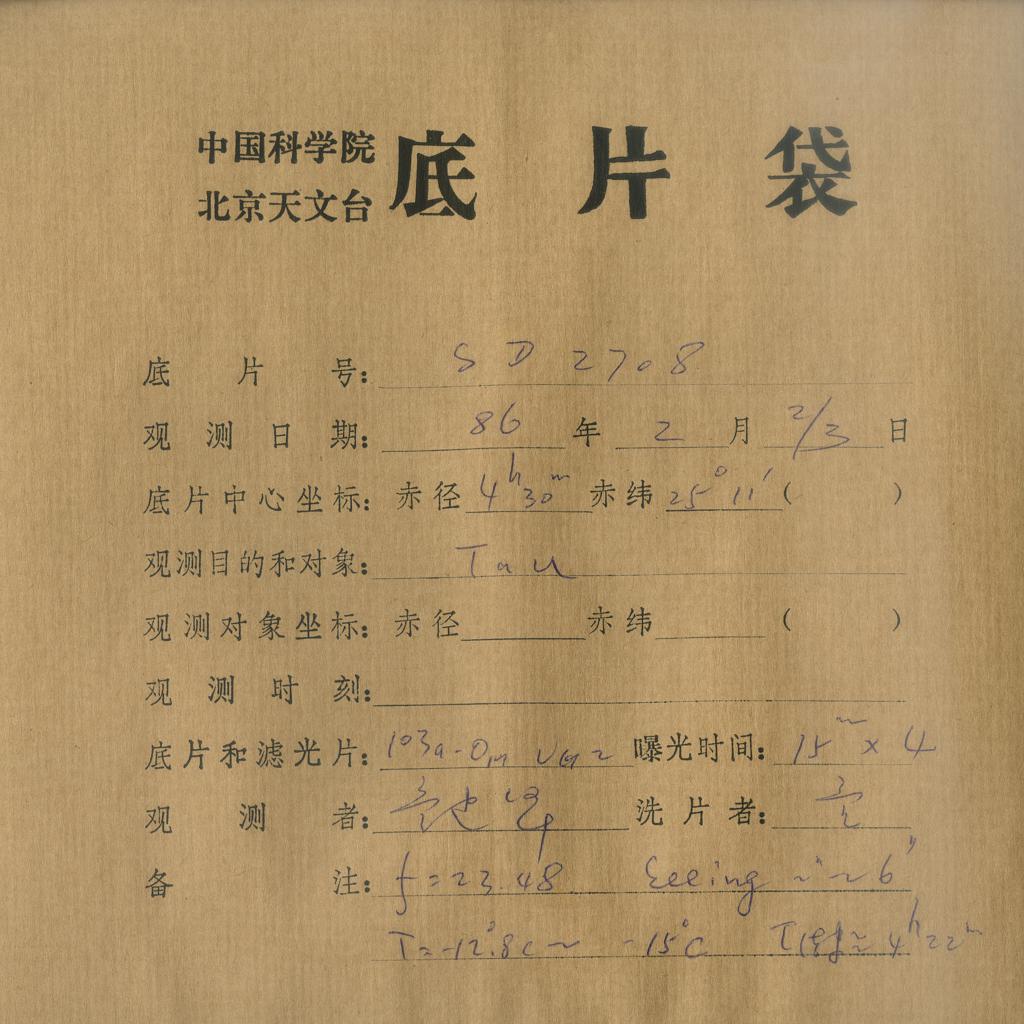 中国科学院
北京天文台
底片袋
底片号: SD2708
观测日期: 86年2月2/3日
底片中心坐标: 赤径4h30m 赤纬25°11′( )
观测目的和对象: Tau
观测对象坐标: 赤径 赤纬 ( )
观测时刻:
底片和滤光片: 103a-O 曝光时间: 15m×4
观测者: 洗片者:
备注: f=23.48 Seeing ~6″
T=-12.8C~ -15°C 4h22m